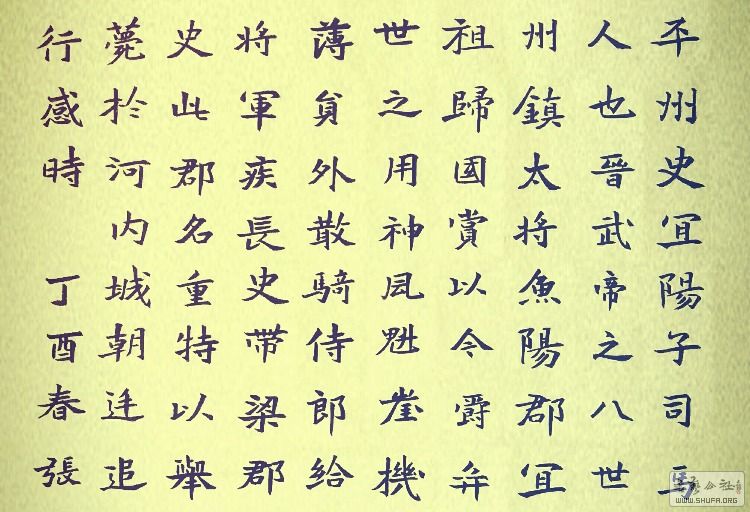 平州史宜陽子司
人也晉武帝之八世
州鎮太將魚陽郡宜
祖歸國賞以令爵并
世之用神凮魁崖機
薄員外散騎侍郎給
將軍疾長史帯梁郡
史此郡名重特以舉
薨於河内城朝廷追
行感時 丁酉春張
公社
WWW.SHUFA.ORG